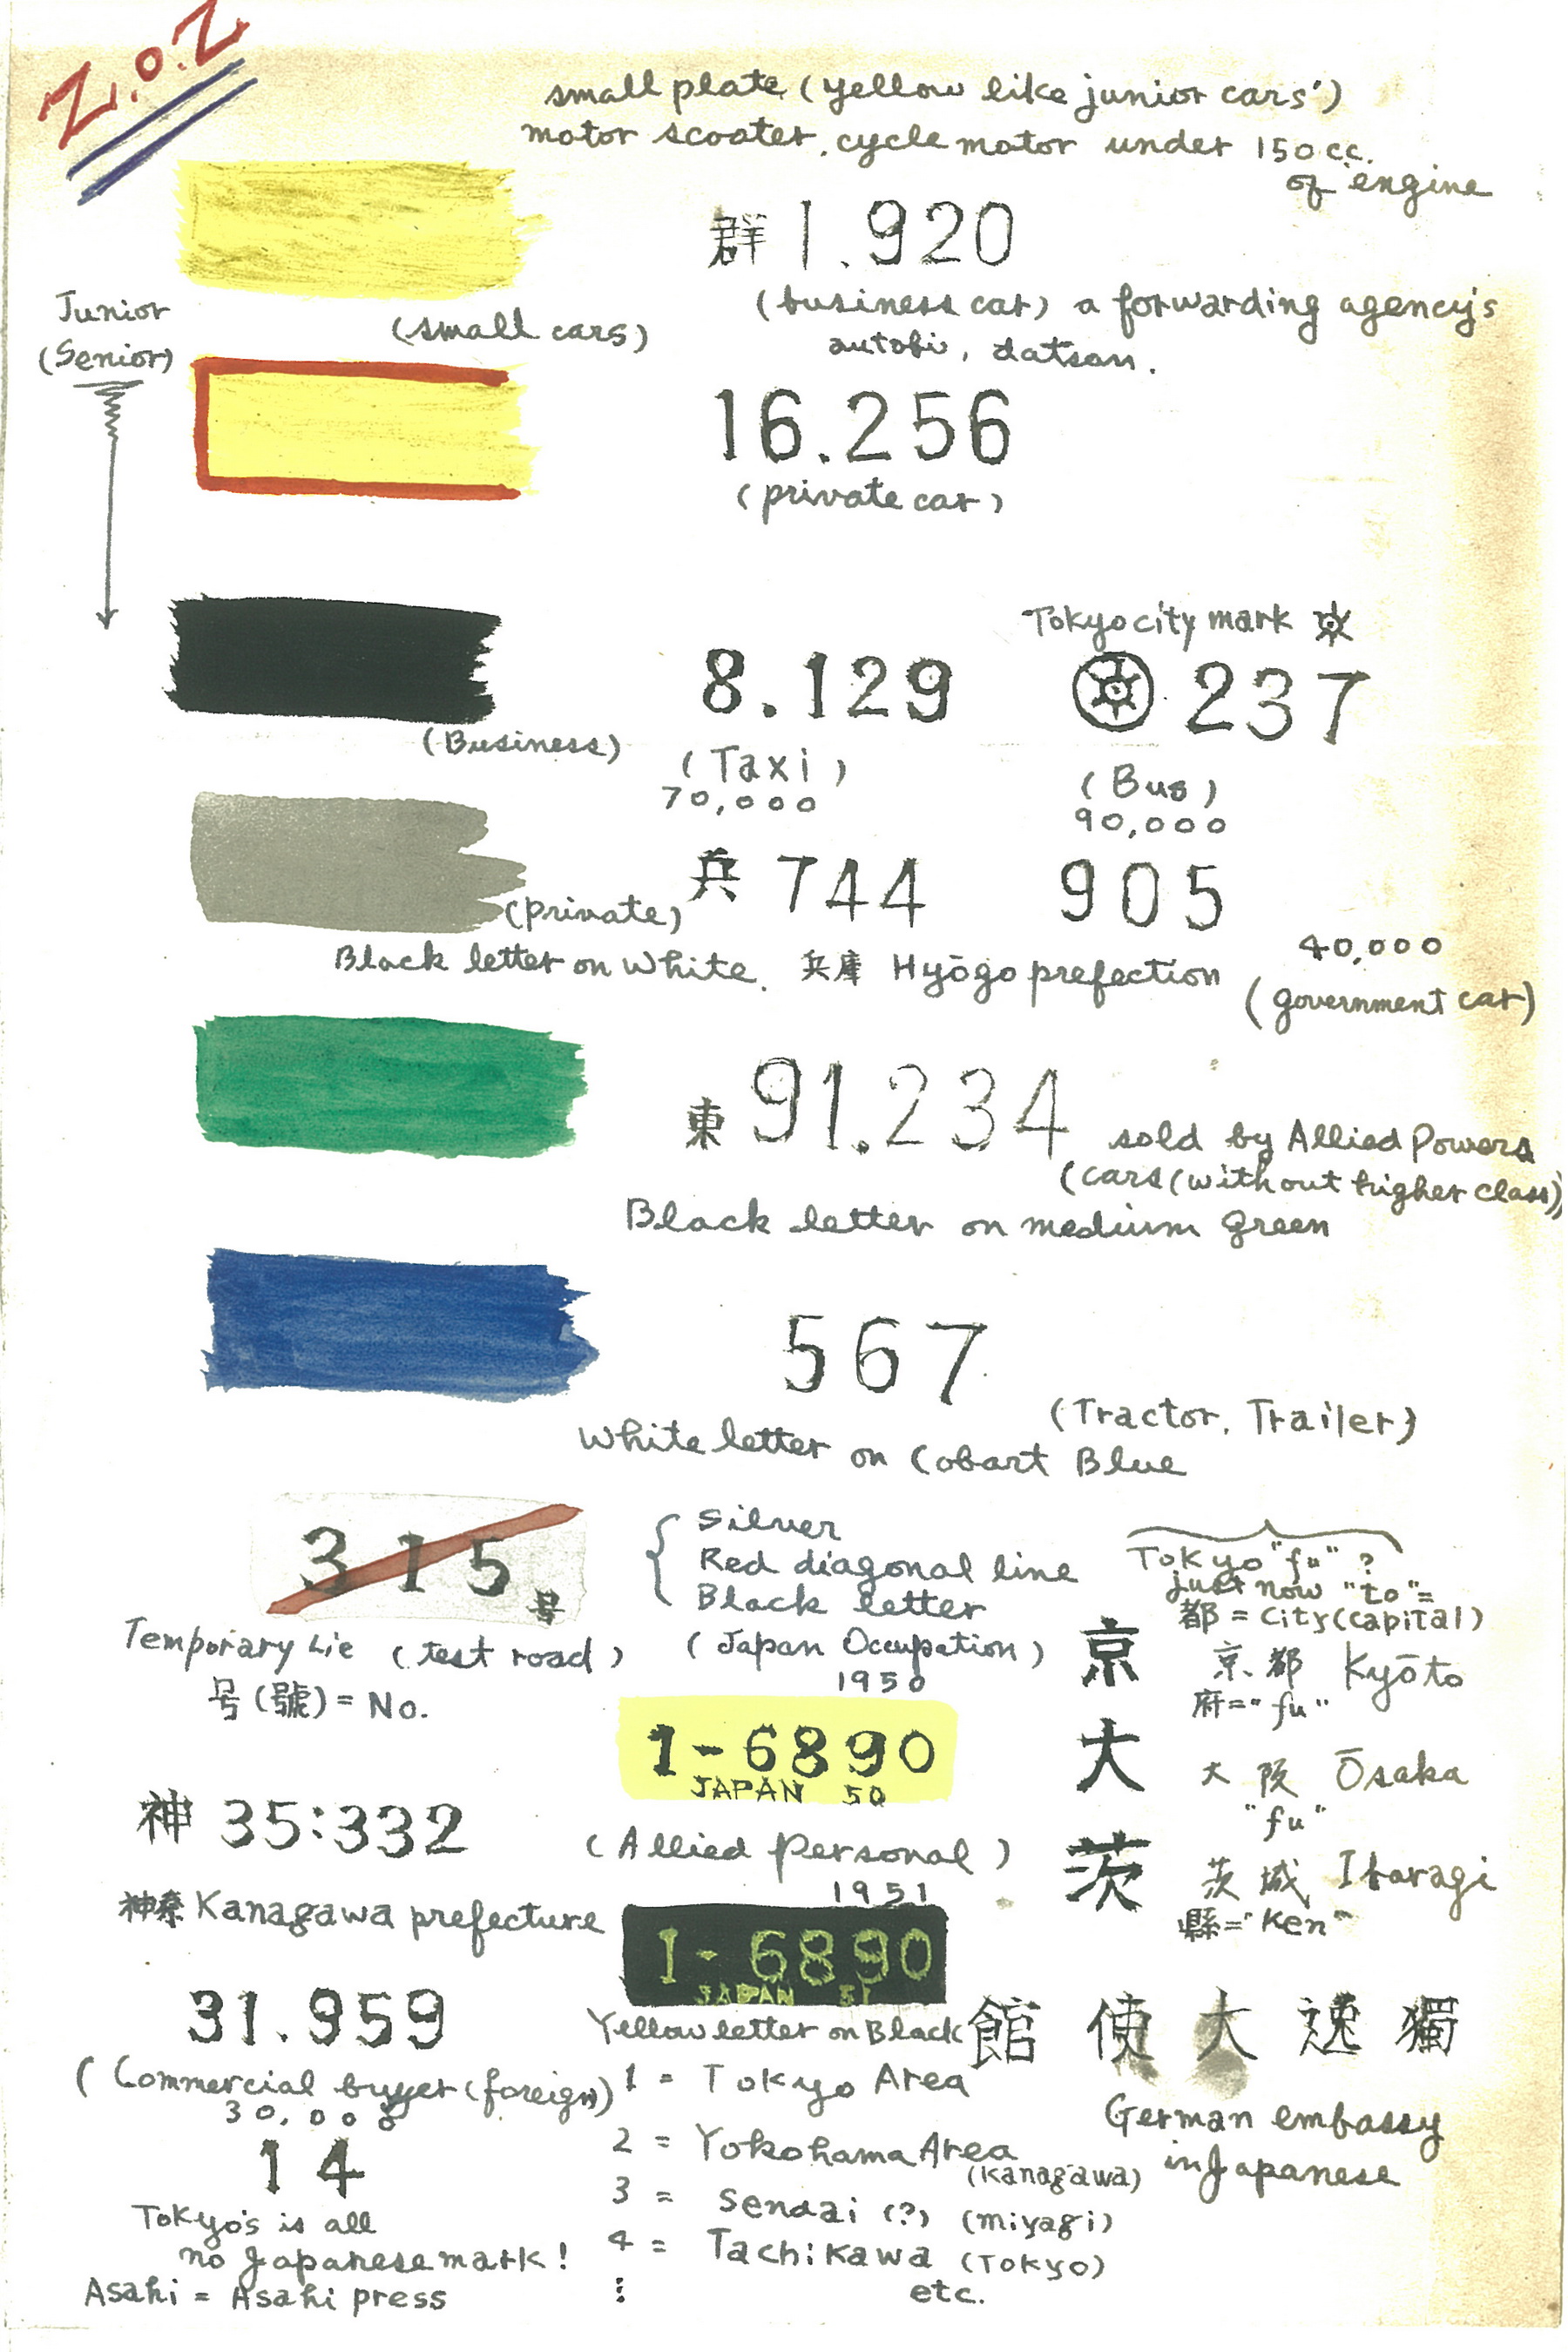 Z.O.Z
small plate (yellow like junior cars')
motor scooter, cycle motor under 150cc.
of engine
群 1.920
Junior
(Senior)
(small cars)
(business car) a forwarding agency's
autobi, datsan.
16.256
(private car)
Tokyo city mark
8.129
237
(Business)
(Taxi)
70,000
(Bus)
90,000
兵 744
905
(private)
40,000
Black letter on White. 兵庫 Hyōgo prefection
(government car)
東 91.234 sold by Allied Powers
(cars (without higher class))
Black letter on medium green
567
(Tractor, Trailer)
White letter on Cobart Blue
315号
Silver
Red diagonal line
Black letter
Temporary Lie (test road)
号(號)= No.
(Japan Occupation)
1950
1-6890
JAPAN 50
(Allied Personal)
1951
1-6890
JAPAN 51
Yellow letter on Black
1 = Tokyo Area
2 = Yokohama Area
(Kanagawa)
3 = Sendai (?) (Miyagi)
4 = Tachikawa (Tokyo)
etc.
神 35:332
神奈 Kanagawa prefecture
31.959
(Commercial buyer (foreign)
30,000
14
Tokyo's is all
no Japanese mark!
Asahi = Asahi press
Tokyo "fu" ?
just now "to" =
都 = City (capital)
京 京都 Kyōto
府 = "fu"
大 大阪 Ōsaka
"fu"
茨 茨城 Ibaragi
縣 = "Ken"
館使大逸獨
German embassy
in Japanese